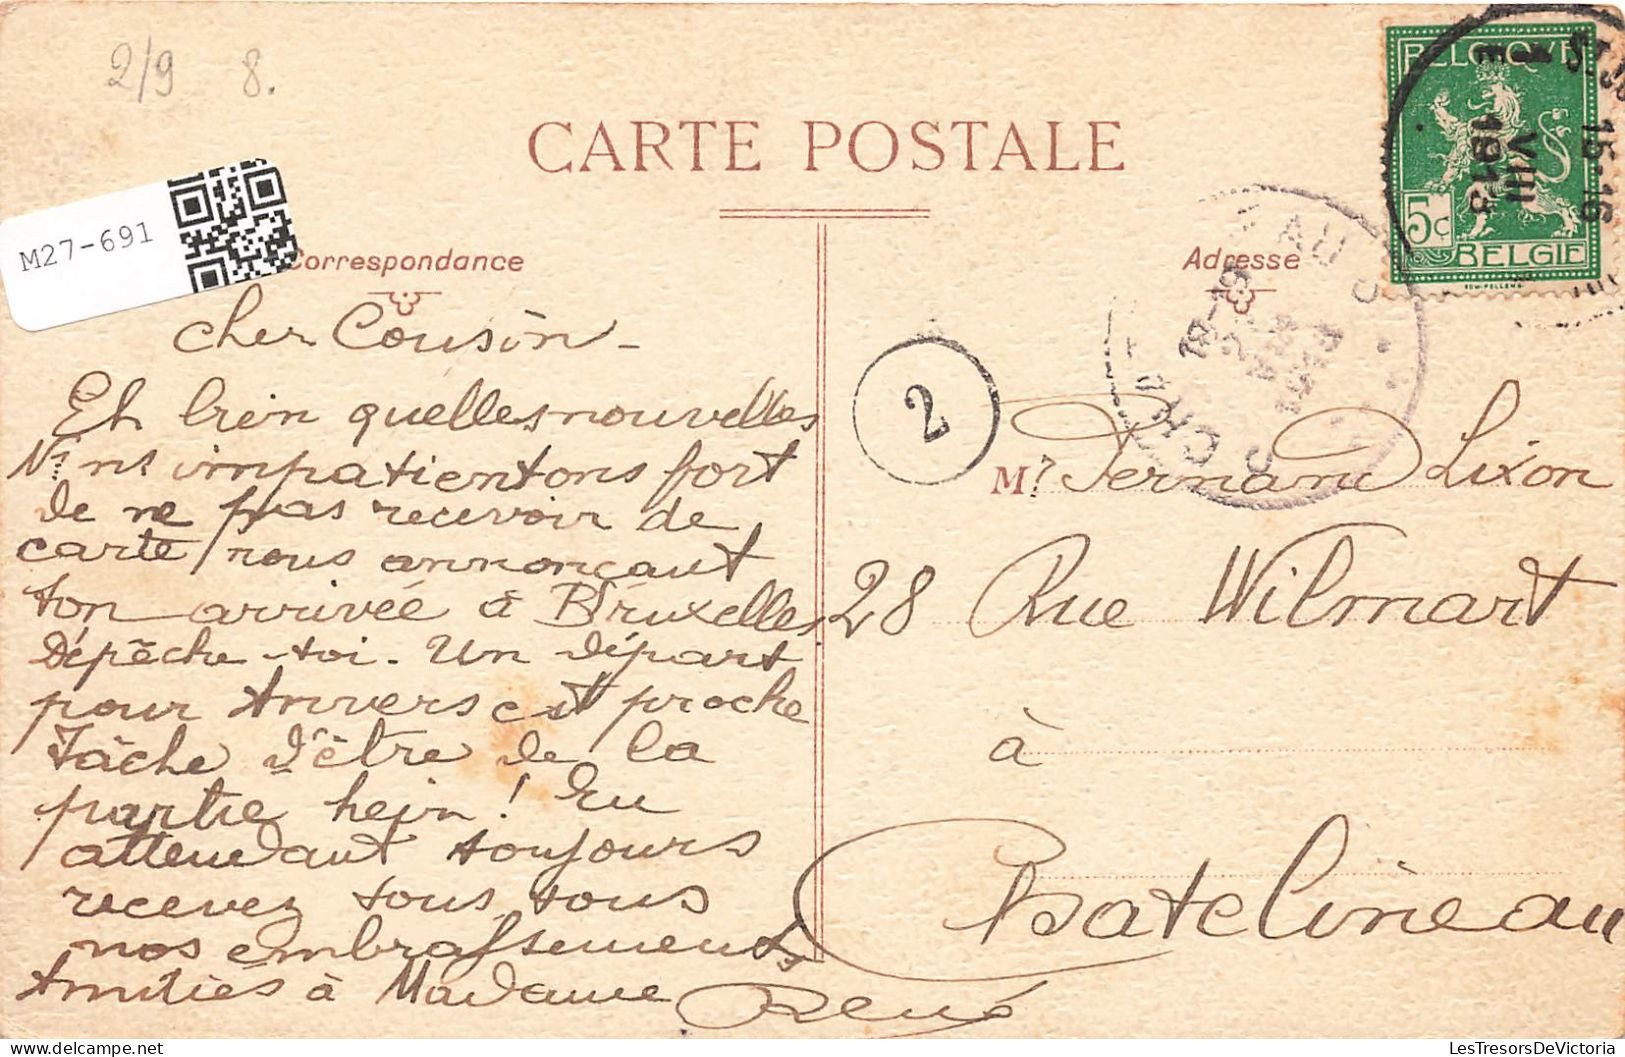 2/9 8.
CARTE POSTALE
M27-691
Correspondance
Adresse
BELGIQUE
5c
BELGIE
1 VIII
E 1913
15-16
2
Cher Cousin -
Eh bien quelles nouvelles
impatientons fort
de ne pas recevoir de
carte nous annonçant
ton arrivée à Bruxelles
Dépêche-toi. Un départ
pour Anvers est proche
Tâche d'être de la
partie hein! En
attendant toujours
recevez tous, tous
nos embrassements
Amitiés à Madame
René
Mr Fernand Lixon
28 Rue Wilmart
à
Chatelineau
LesTresorsDeVictoria